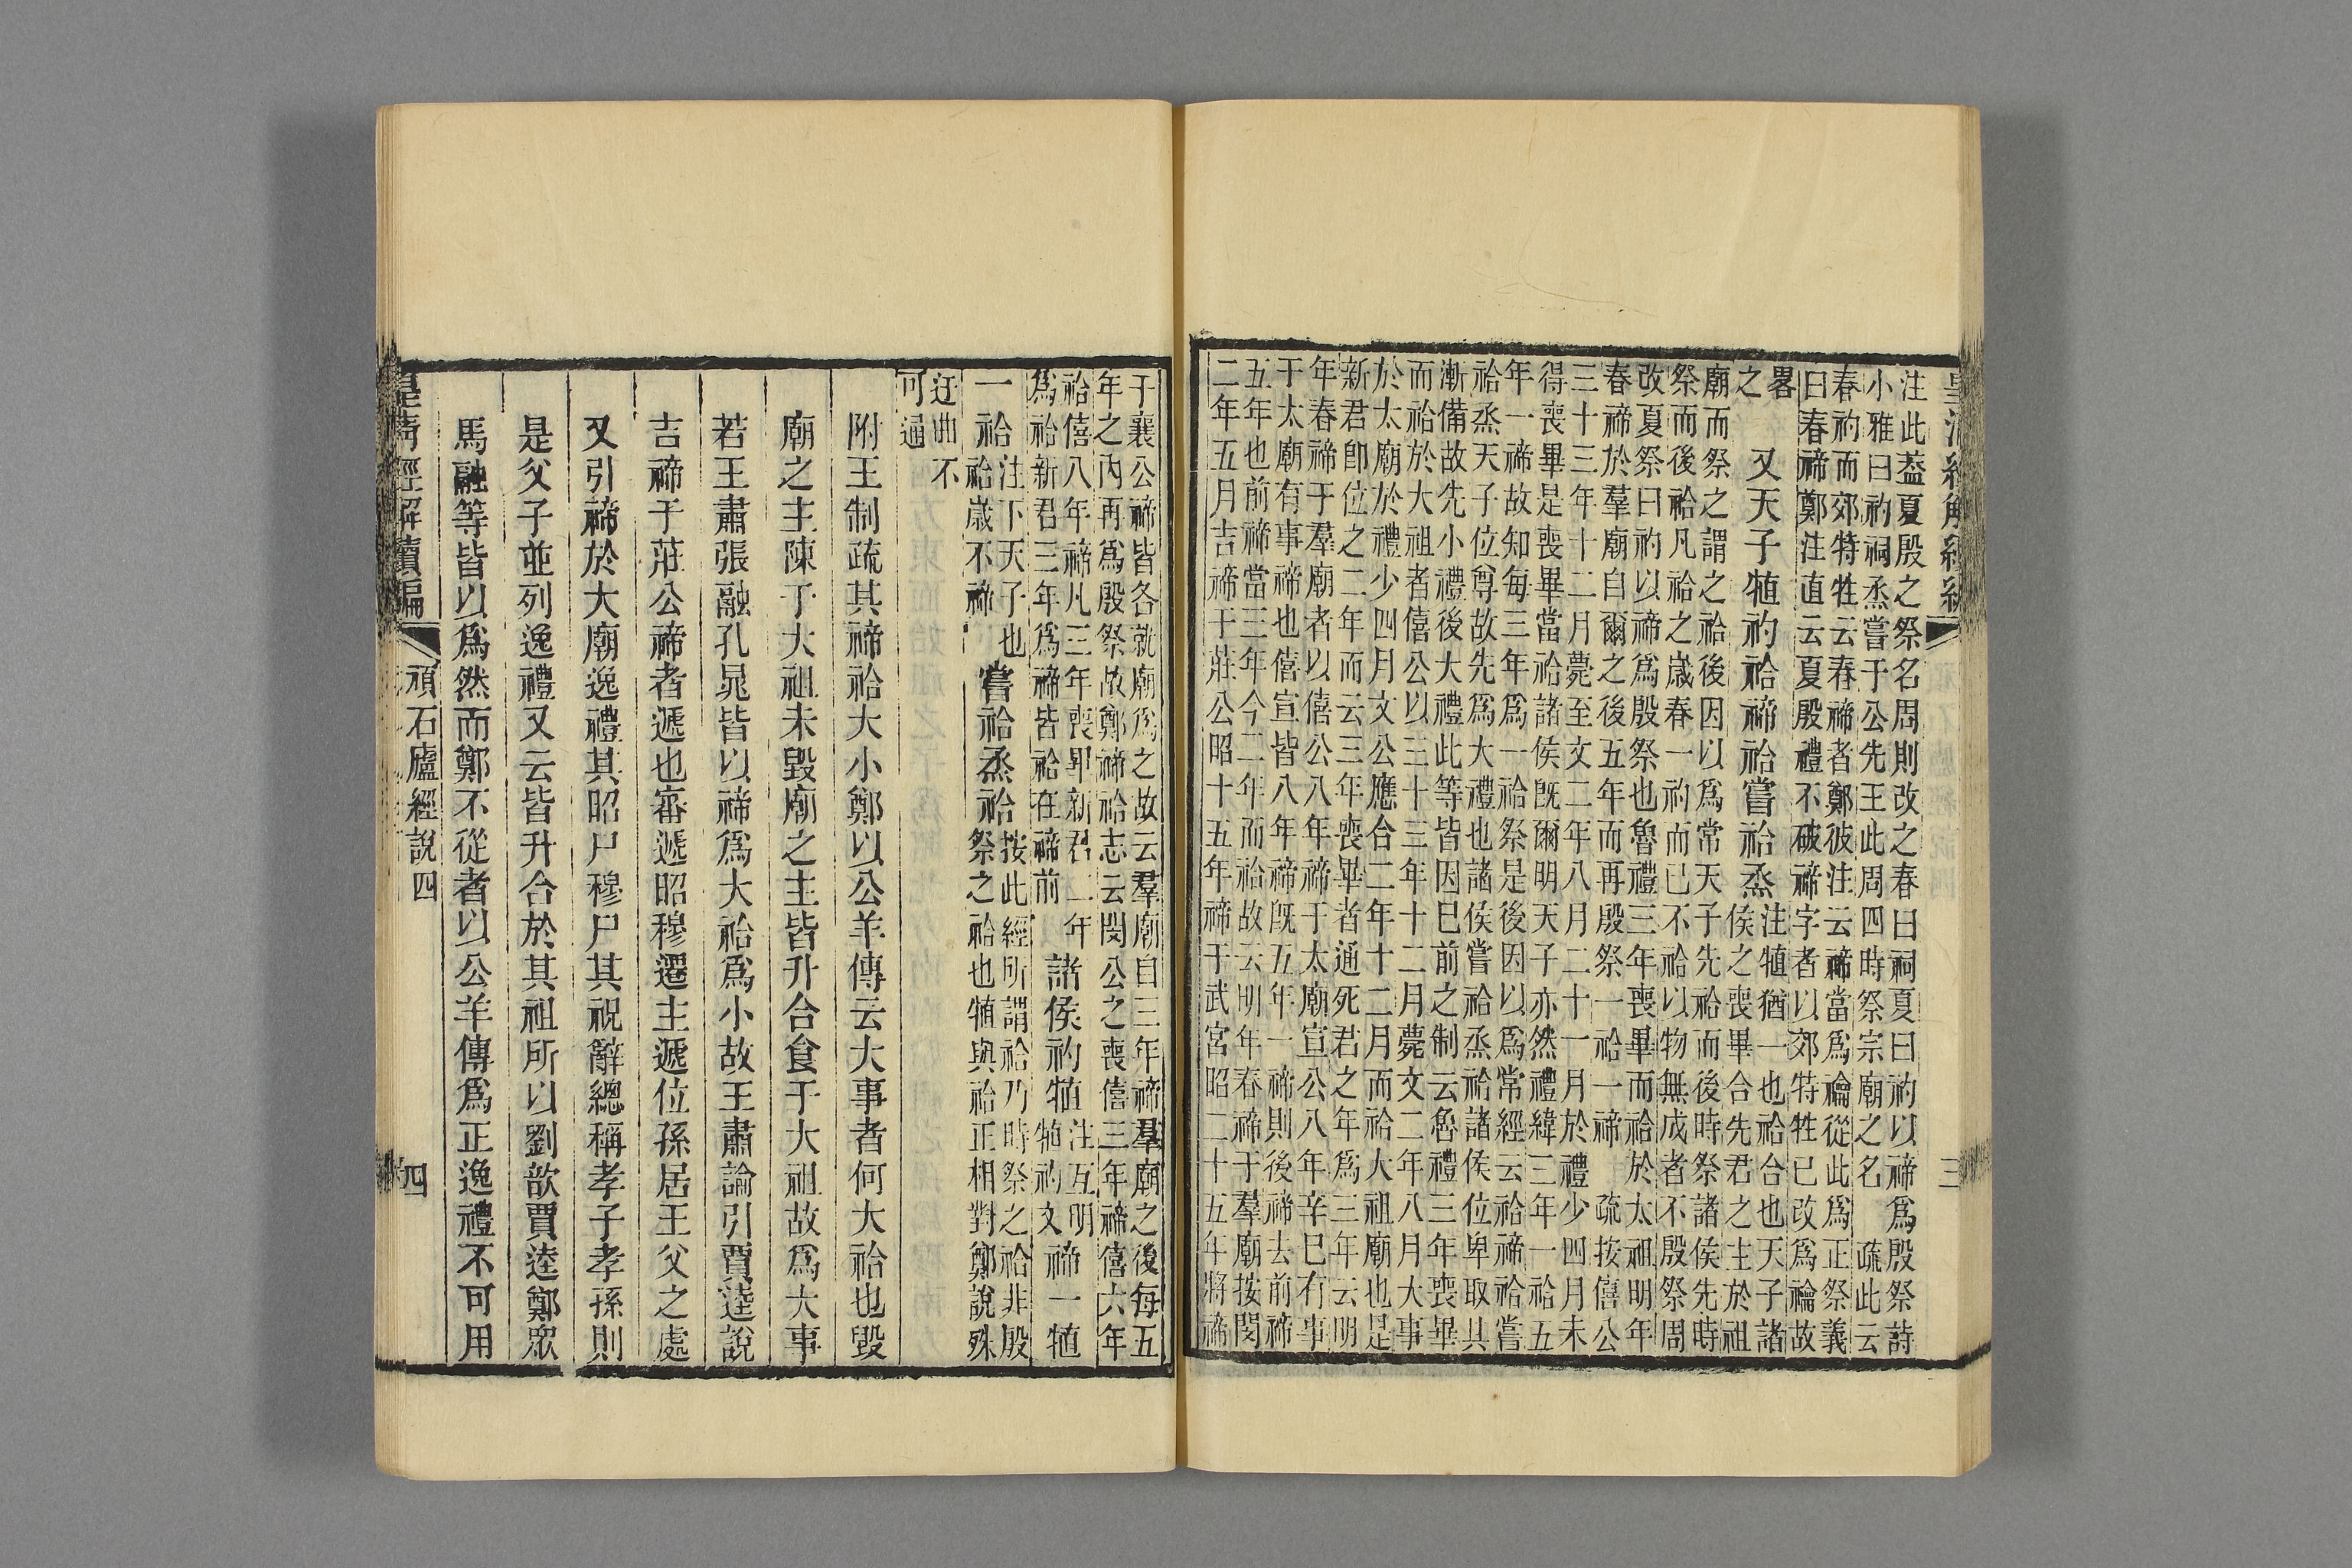 注此葢夏殷之祭名周則改之春曰祠夏曰礿以禘爲殷祭詩
小雅曰礿祠烝嘗于公先王此周四時祭宗廟之名　疏此云
春礿而郊特牲云春禘者鄭彼注云禘當爲禴從此爲正祭義
曰春禘鄭注直云夏殷禮不破禘字者以郊特牲已改爲禴故
畧
之
又天子犆礿祫禘祫嘗祫烝
注犆猶一也祫合也天子諸
侯之喪畢合先君之主於祖
廟而祭之謂之祫後因以爲常天子先祫而後時祭諸侯先時
祭而後祫凡祫之歲春一礿而已不祫以物無成者不殷祭周
改夏祭曰礿以禘爲殷祭也魯禮三年喪畢而祫於太祖明年
春禘於羣廟自爾之後五年而再殷祭一祫一禘　疏按僖公
三十三年十二月薨至文二年八月二十一月於禮少四月未
得喪畢是喪畢當祫諸侯旣爾明天子亦然禮緯三年一祫五
年一禘故知每三年爲一祫祭是後因以爲常經云祫禘祫嘗
祫烝天子位尊故先爲大禮也諸侯嘗祫烝祫諸侯位卑取其
漸備故先小禮後大禮此等皆因已前之制云魯禮三年喪畢
而祫於大祖者僖公以三十三年十二月薨文二年八月大事
於太廟於禮少四月文公應合二年十二月而祫大祖廟也是
新君卽位之二年而云三年喪畢者通死君之年爲三年云明
年春禘于羣廟者以僖公八年禘于太廟宣公八年辛巳有事
于太廟有事禘也僖宣皆八年禘旣五年一禘則後禘去前禘
五年也前禘當三年今二年而祫故云明年春禘于羣廟按閔
二年五月吉禘于莊公昭十五年禘于武宮昭二十五年將禘
皇清經解續編
三
于襄公禘皆各就廟爲之故云羣廟自三年禘羣廟之後每五
年之內再爲殷祭故鄭禘祫志云閔公之喪僖三年禘僖六年
祫僖八年禘凡三年喪畢新君二年
爲祫新君三年爲禘皆祫在禘前
諸侯礿犆
注互明
犆礿文
禘一犆
一祫
注下天子也
祫歲不禘
嘗祫烝祫
按此經所謂祫乃時祭之祫非殷
祭之祫也犆與祫正相對鄭說殊
迂曲不
可通
附王制疏其禘祫大小鄭以公羊傳云大事者何大祫也毀
廟之主陳于大祖未毀廟之主皆升合食于大祖故爲大事
若王肅張融孔晁皆以禘爲大祫爲小故王肅論引賈逵說
吉禘于莊公禘者遞也審遞昭穆遷主遞位孫居王父之處
又引禘於大廟逸禮其昭尸穆尸其祝辭總稱孝子孝孫則
是父子並列逸禮又云皆升合於其祖所以劉歆賈逵鄭眾
馬融等皆以爲然而鄭不從者以公羊傳爲正逸禮不可用
皇清經解續編
頑石廬經說四
四